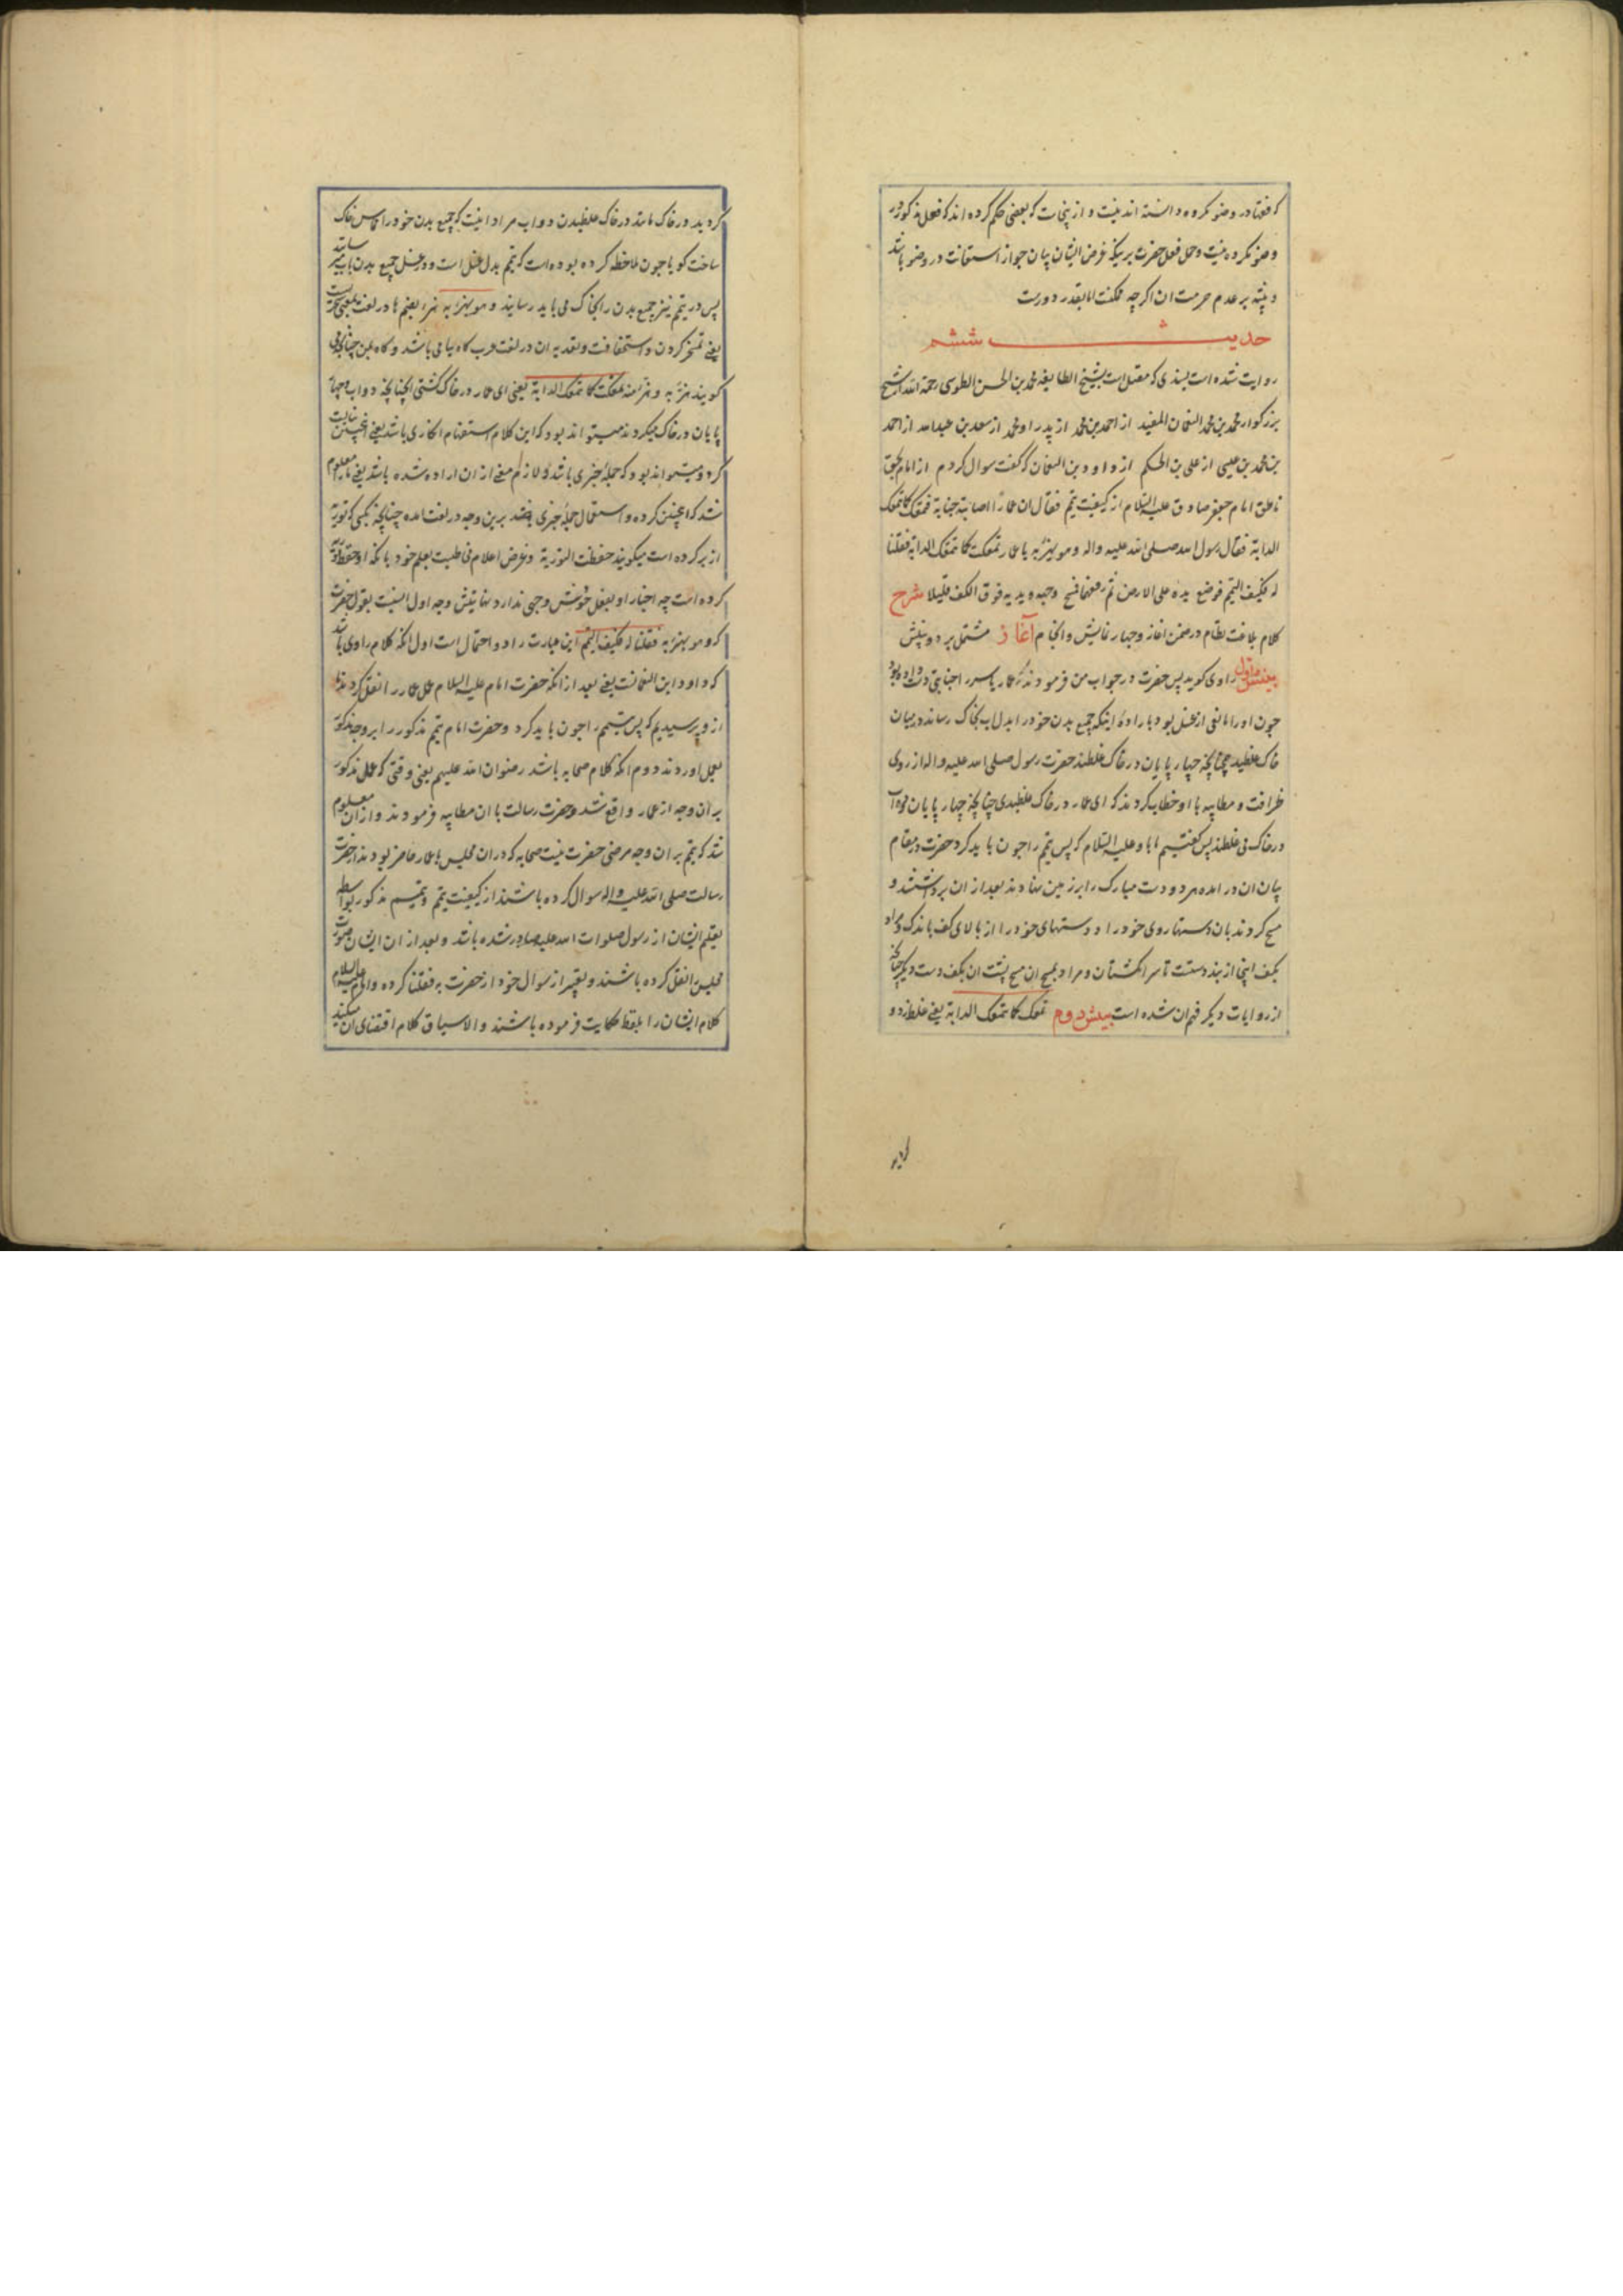 که فقها در وضو مکروه دانسته اند نیست و از ینجاست که بعضی حکم کرده اند که فعل مذکور در
وضو مکروه نیست و حمل فعل حضرت بر بیکه غرض ایشان بیان جواز استعانت در وضو باشد
و بر عدم حرمت ان اگر چه ممکنست اما بقدر دورست
حدیث ششم
روایت شده است بسندی که متصل است بشیخ الطایفه محمد بن الحسن الطوسی رحمة الله از شیخ
بزرگوار محمد بن محمد النعمان المفید از احمد بن محمد از پدر او محمد از سعد بن عبدالله از احمد
بن محمد بن عیسی از علی بن الحکم از داود بن النعمان که گفت سوال کردم از امام بحق
ناطق امام جعفر صادق علیه السلام از کیفیت تیمم فقال ان عمارا اصابته جنابة فتمعک کما تتمعک
الدابة فقال رسول الله صلی الله علیه واله وهو یهزء به یا عمار تمعکت کما تتمعک الدابة فقلنا
له فکیف التیمم فوضع یده علی الارض ثم رفعها فمسح وجهه و یدیه فوق الکف قلیلا شرح
کلام بلاغت نظام در ضمن اغاز و چهار نمایش و انجام آغاز مشتمل بر دو بینش
بینش اول راوی کوید پس حضرت در جواب من فرمودند که عمار یاسر را جنابتی دست داده بود
چون او را مانعی از غسل بود باراده اینکه جمیع بدن خود را بدل اب بخاک رساند در میان
خاک غلطید همچنانچه چهار پایان در خاک غلطند حضرت رسول صلی الله علیه واله از روی
ظرافت و مطایبه با او خطاب کردند که ای عمار در خاک غلطیدی چنانچه چهار پایان دواب
در خاک می غلطند پس گفتیم ما باو علیه السلام که پس تیمم را چون باید کرد حضرت در مقام
بیان ان در امده هر دو دست مبارک را بر زمین نهادند بعد از ان برداشتند و
مسح کردند بان دستها روی خود را و دستهای خود را از بالای کف باندک و مراد
بکف اینجا از بند دست تا سر انگشتان و مراد بمسح ان مسح پشت ان بکف دست دیگر چنانچه
از روایات دیگر فهم ان شده است بینش دوم تمعک کما تتمعک الدابة یعنی غلط زد و
کردید
کردید در خاک مانند در خاک غلطیدن دواب مراد اینست که جمیع بدن خود را مماس خاک
ساخت کویا چون ملاحظه کرده بوده است که تیمم بدل غسل است و در غسل جمیع بدن باب میرسانند
پس در تیمم نیز جمیع بدن را بخاک می باید رسانید و هو یهزء به هزء بضم ها در لغت بمعنی سخریت
یعنی تمسخر کردن و استخفافست و تعدیه ان در لغت عرب کاه ببا می باشد و کاه بمن چنانچه می
کویند هزء به و هزء منه تمعکت کما تتمعک الدابة یعنی ای عمار در خاک کشتی انچنانچه دواب و چهار
پایان در خاک میکردند میتواند بود که این کلام استفهام انکاری باشد یعنی اینچنین نبایست
کرد و میتواند بود که جمله خبری باشد و لازم معنی از ان اراده شده باشد یعنی ما را معلوم
شد که اینچنین کرده و استعمال جمله خبری بقصد برین وجه در لغت امده چنانچه بکسی که توریة
از بر کرده است میکویند حفظت التوریة و غرض اعلام مخاطبست بعلم خود بانکه او حفظ توریة
کرده است چه اخبار او بفعل خودش وجهی ندارد نهایتش وجه اول انسبست بقول حضرت
که و هو یهزء به فقلنا له فکیف التیمم این عبارت را دو احتمال است اول انکه کلام راوی باشد
که داود ابن النعمانست یعنی بعد از انکه حضرت امام علیه السلام عمل عمار را نقل کردند ما
از و پرسیدیم که پس تیمم را چون باید کرد و حضرت امام تیمم مذکور را بر وجه مذکور
بعمل اوردند دوم انکه کلام صحابه باشد رضوان الله علیهم یعنی وقتی که عمل مذکور
بر آن وجه از عمار واقع شد و حضرت رسالت با ان مطایبه فرمودند و از ان معلوم
شد که تیمم بر ان وجه مرضی حضرت نیست صحابه که در ان مجلس با عمار حاضر بودند از حضرت
رسالت صلی الله علیه واله سوال کرده باشند از کیفیت تیمم و تیمم مذکور بواسطه
تعلیم ایشان از رسول صلوات الله علیه صادر شده باشد و بعد از ان ایشان صورت
مجلس را نقل کرده باشند و تعبیر از سوال خود از حضرت به فقلنا کرده و امام علیه السلام
کلام ایشان را بلفظ حکایت فرموده باشند و الا سیاق کلام اقتضای ان میکند